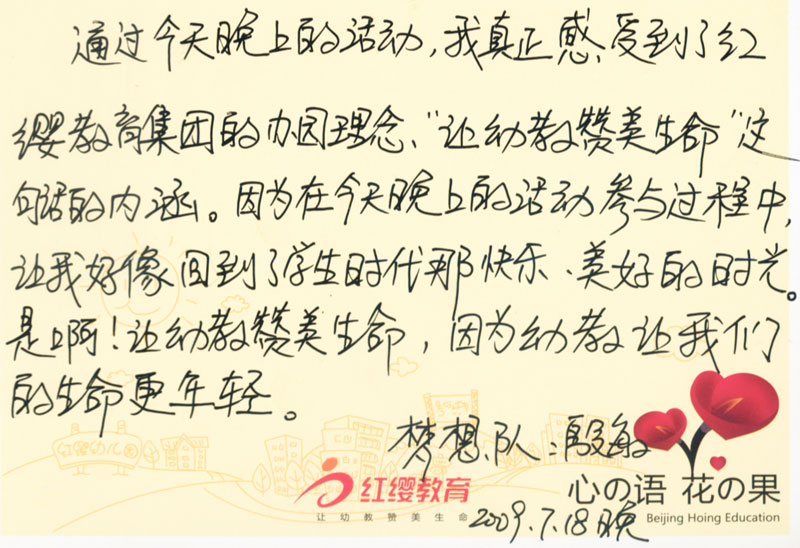 通过今天晚上的活动,我真正感受到了红
缨教育集团的办园理念、“让幼教赞美生命”这
句话的内涵。因为在今天晚上的活动参与过程中,
让我好像回到了学生时代那快乐、美好的时光。
是啊!让幼教赞美生命,因为幼教让我们
的生命更年轻。
梦想队:殷敏
红缨幼儿园
红缨教育
让幼教赞美生命
心の语 花の果
Beijing Hoing Education
2009.7.18晚